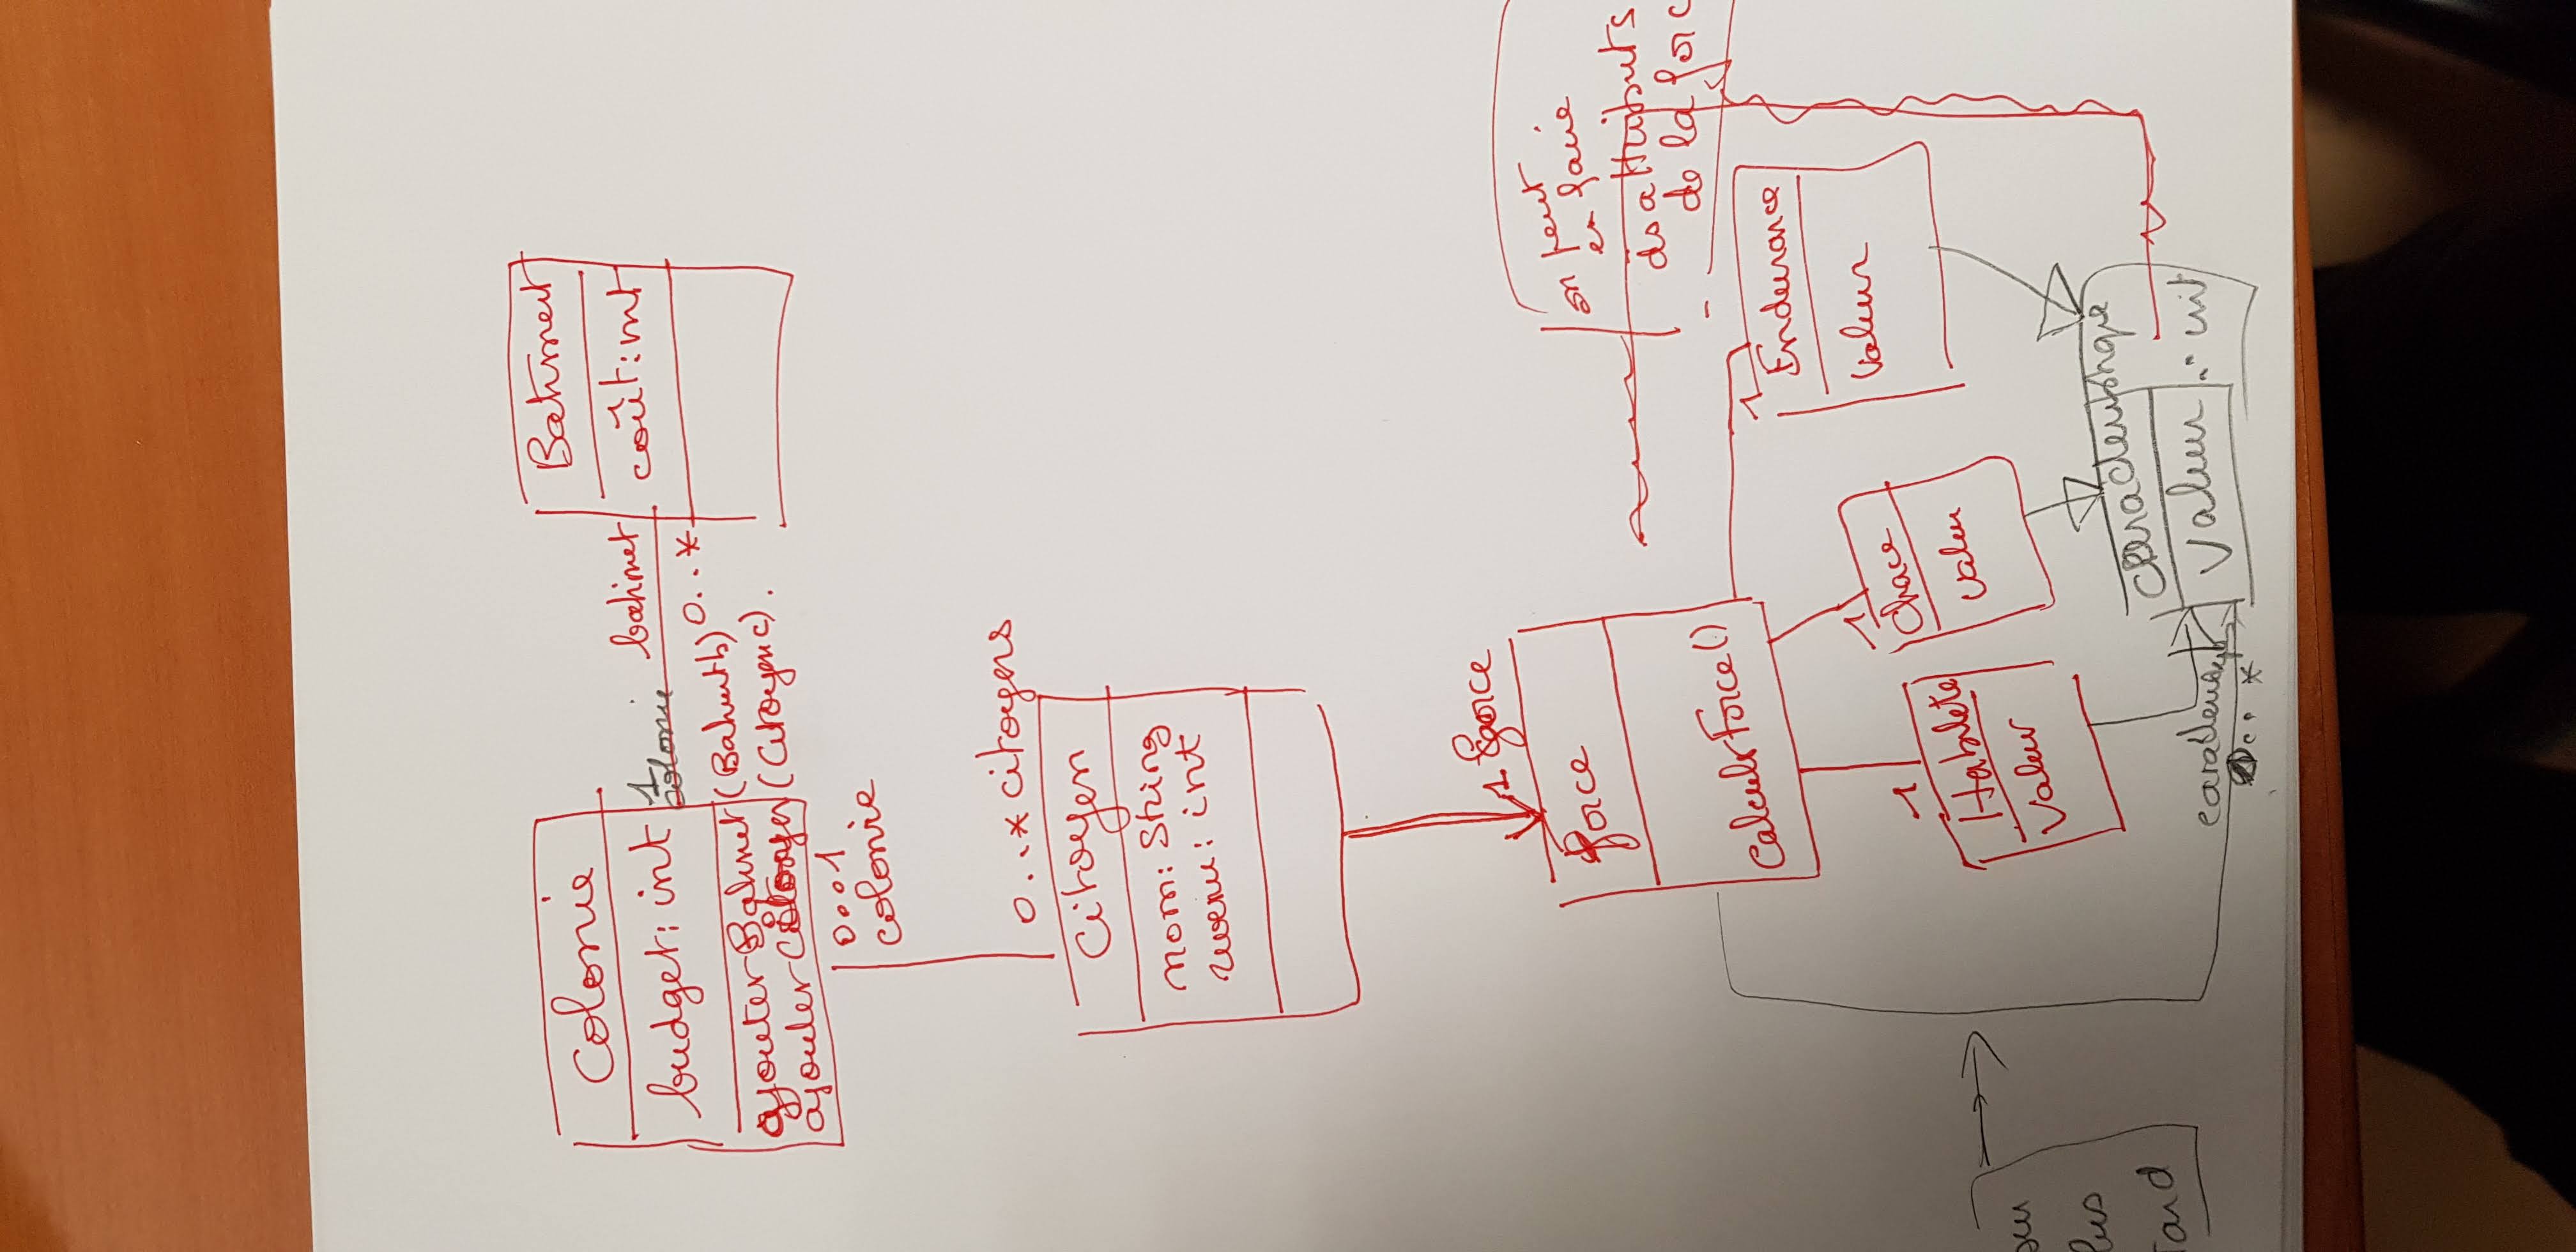 Colonie
budget: int
ajouterBatiment (Batiment b)
ajouterCitoyen (Citoyen c).
1
colonie
batiment
0..*
Batiment
coût: int
0..1
colonie
0..* citoyens
Citoyen
nom: String
revenu: int
1 force
Force
CalculerForce()
1
Habileté
Valeur
1
Chance
Valeur
1
Endurance
Valeur
on peut
en faire
ds attributs
de la
Caractéristique
Valeur : int
0..*
plus
tard